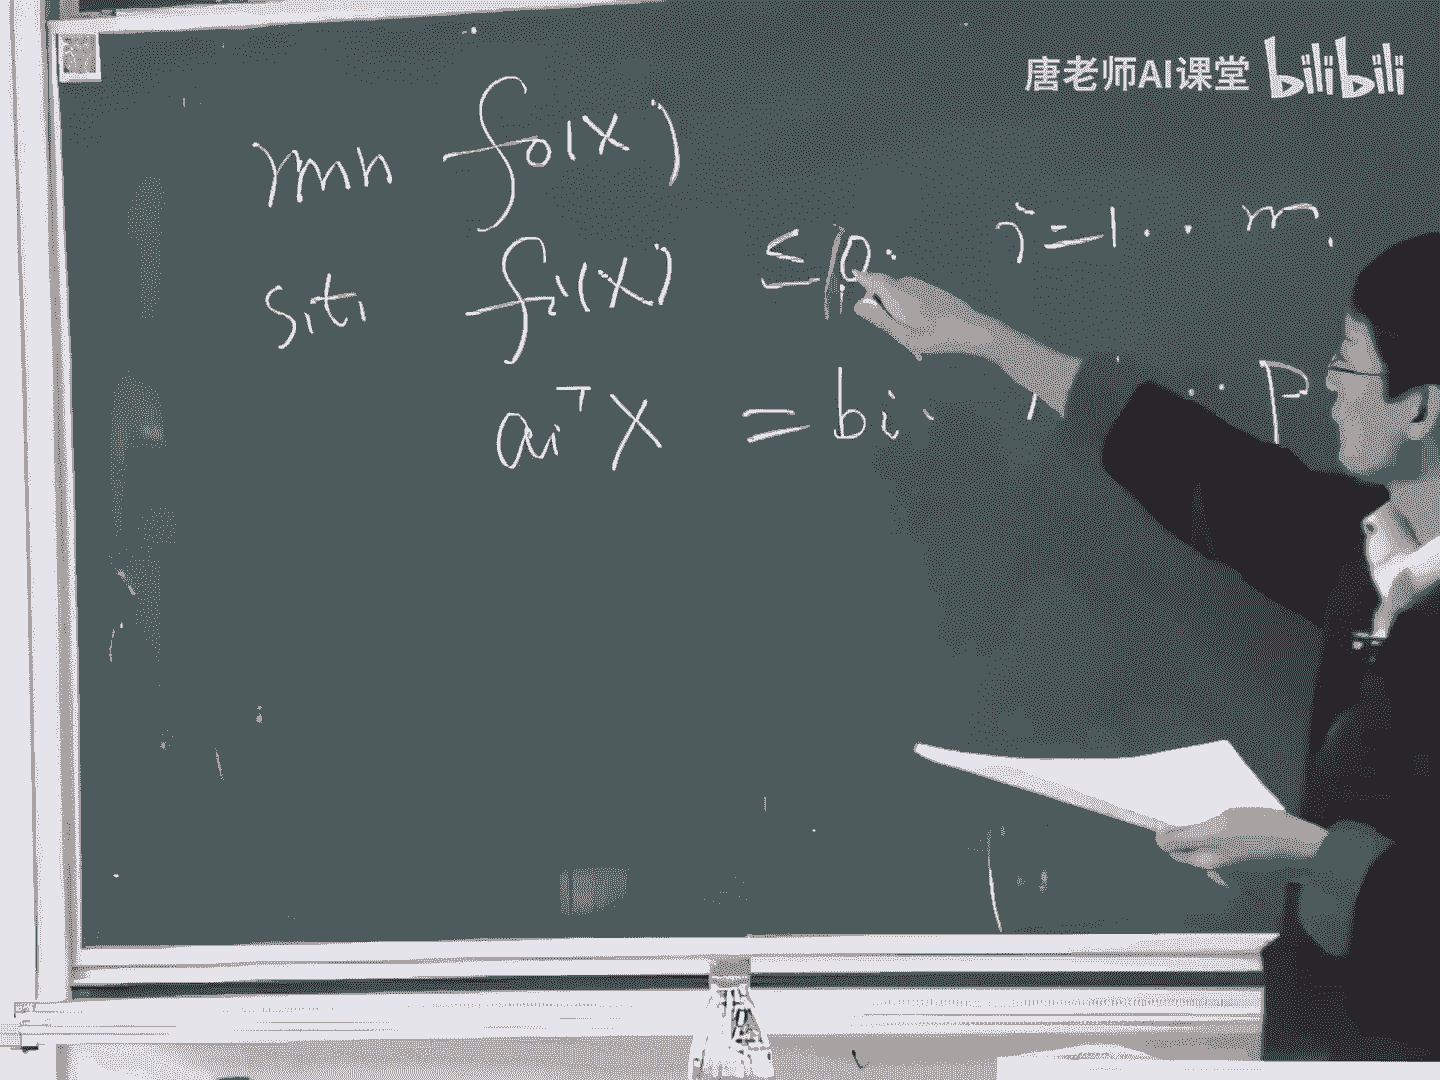 唐老师AI课堂 bilibili
min f₀(x)
s.t. fᵢ(x) ≤ 0. i=1...m.
aᵢᵀx = bᵢ. ... P